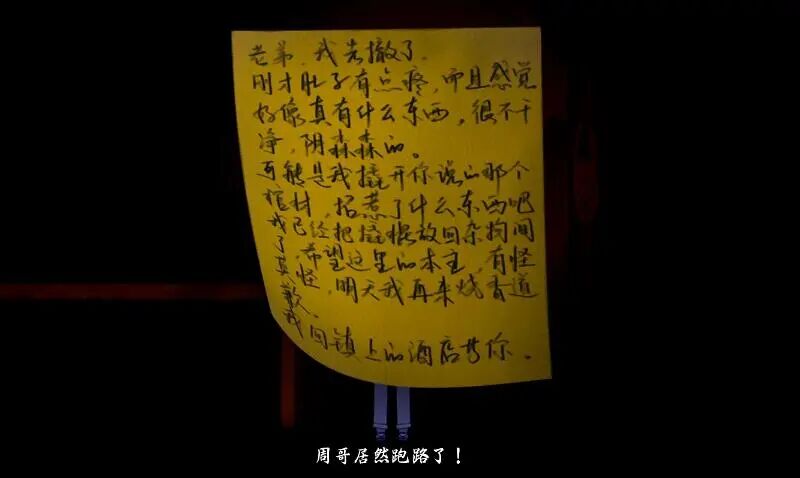 老弟,我先撤了,
刚才肚子有点疼,而且感觉
好像真有什么东西,很不干
净,阴森森的。
可能是我撬开你说的那个
棺材,招惹了什么东西吧
我已经把撬棍放回杂物间
了,希望这里的本主,有怪
莫怪,明天我再来烧香道
歉。
我回镇上的酒店等你。
周哥居然跑路了!